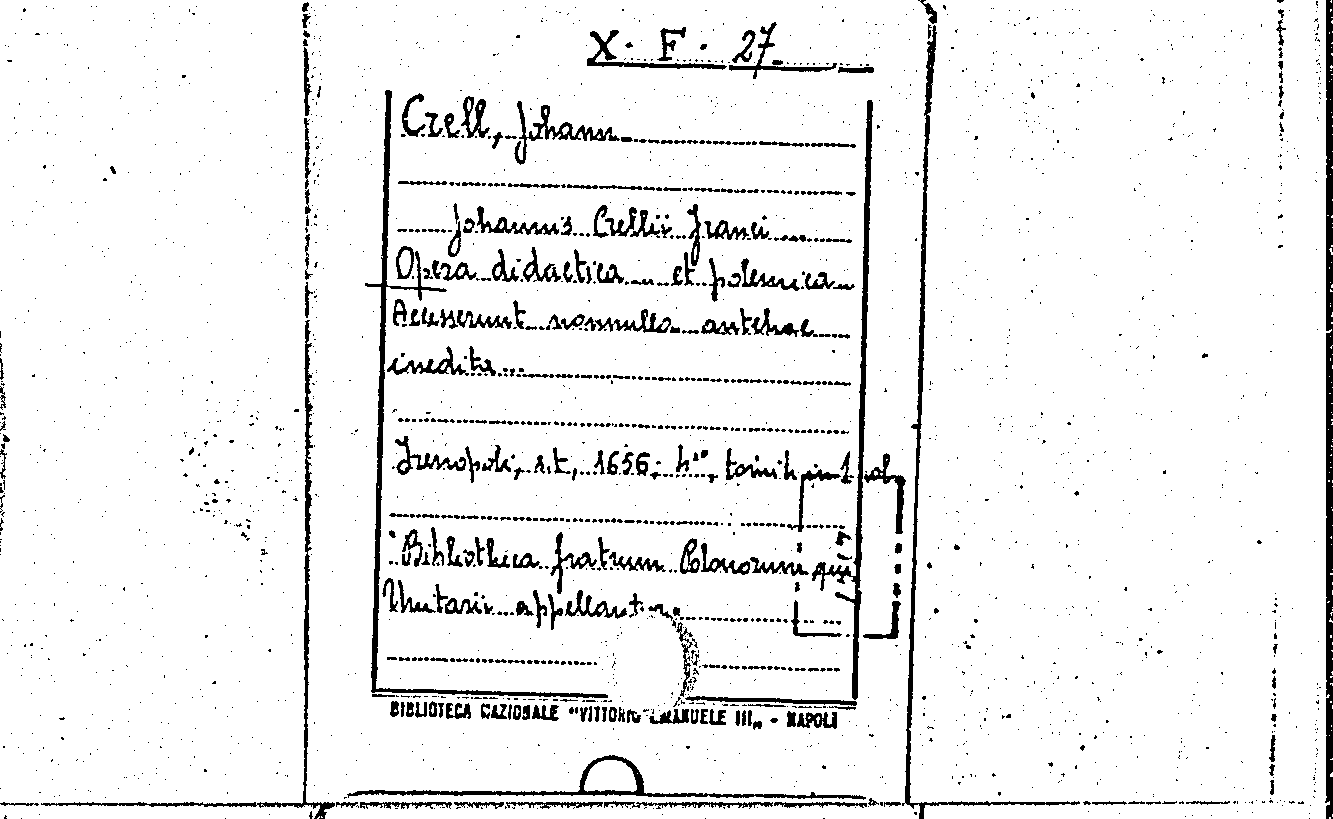 X. F. 27.
Crell, Johann
Johannis Crellii Franci ...
Opera didactica ... et polemica
Accesserunt nonnulla antehac
inedita ...
Irenopoli, s.t., 1656; tomi in 1 vol.
"Bibliotheca fratrum Polonorum qui
Unitarii appellantur"
BIBLIOTECA NAZIONALE "VITTORIO EMANUELE III„ - NAPOLI